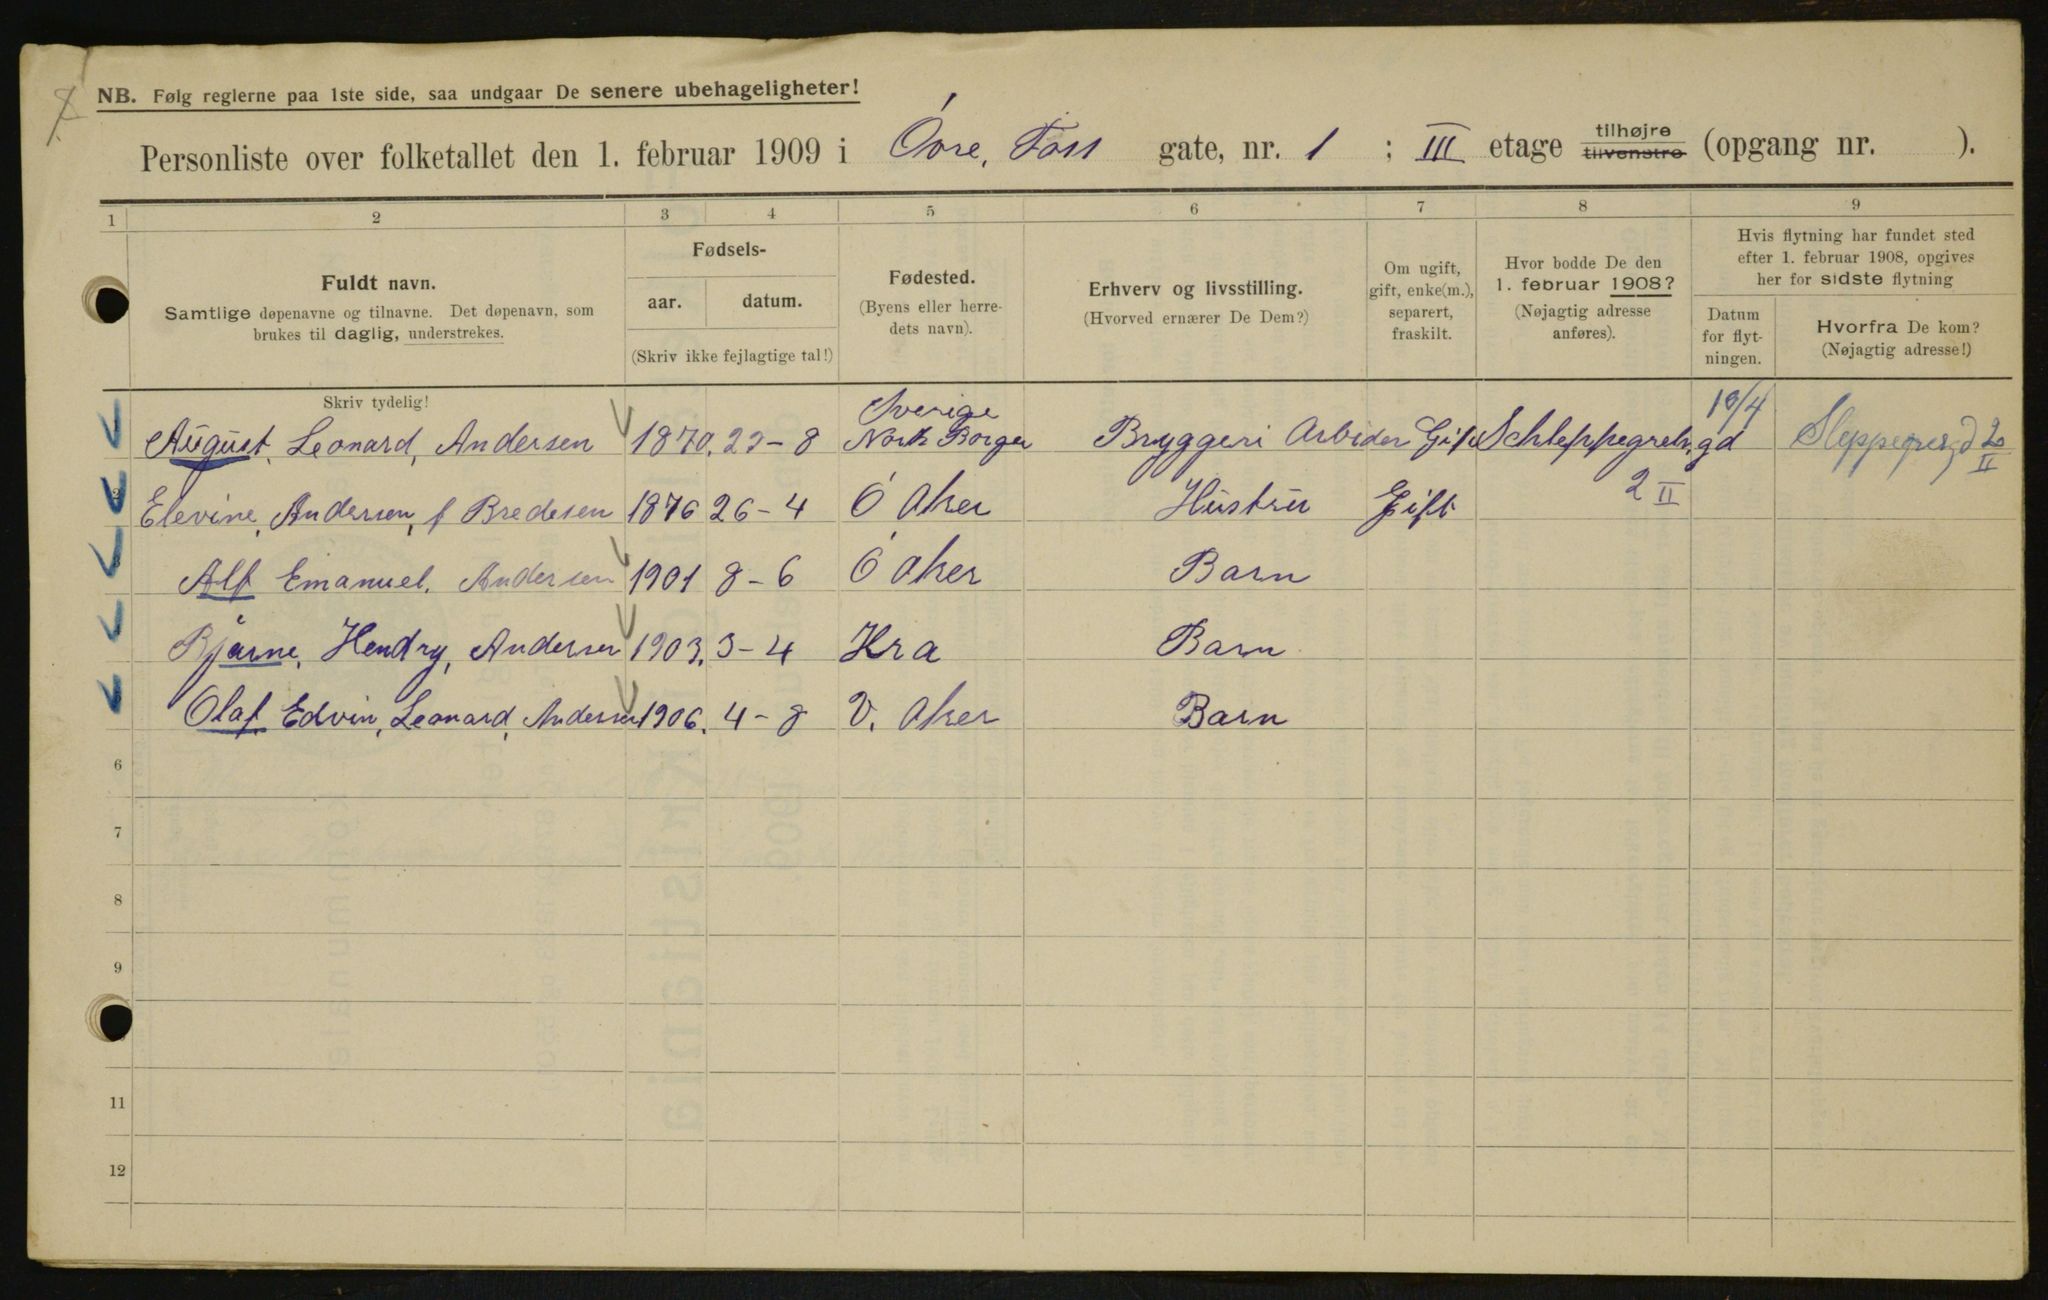 NB. Følg reglerne paa 1ste side, saa undgaar De senere ubehageligheter!
Personliste over folketallet den 1. februar 1909 i Övre, Foss gate, nr. 1 ; III etage tilhøjre tilvenstre (opgang nr. ).
1 2 3 4 5 6 7 8 9
Fuldt navn.
Samtlige døpenavne og tilnavne. Det døpenavn, som
brukes til daglig, understrekes.
Fødsels-
aar. datum.
(Skriv ikke fejlagtige tal!)
Fødested.
(Byens eller herre-
dets navn).
Erhverv og livsstilling.
(Hvorved ernærer De Dem?)
Om ugift,
gift, enke(m.),
separert,
fraskilt.
Hvor bodde De den
1. februar 1908?
(Nøjagtig adresse
anføres).
Hvis flytning har fundet sted
efter 1. februar 1908, opgives
her for sidste flytning
Datum
for flyt-
ningen.
Hvorfra De kom?
(Nøjagtig adresse!)
Skriv tydelig!
Sverige
August, Leonard, Andersen 1870. 8 Bryggeri Arbider Gift Schleppegrels, gd
Elevine, Andersen, f Bredesen 1876 26-4 Ö Aker Hustru Gift 2 II
Alf Emanuel, Andersen 1901 8-6 Ö Aker Barn
Bjarne, Hendry, Andersen 1903. 3-4 Kra Barn
Olaf Edvin, Leonard, Andersen 1906. 4-8 V. Aker Barn
6
7
8
9
11
12